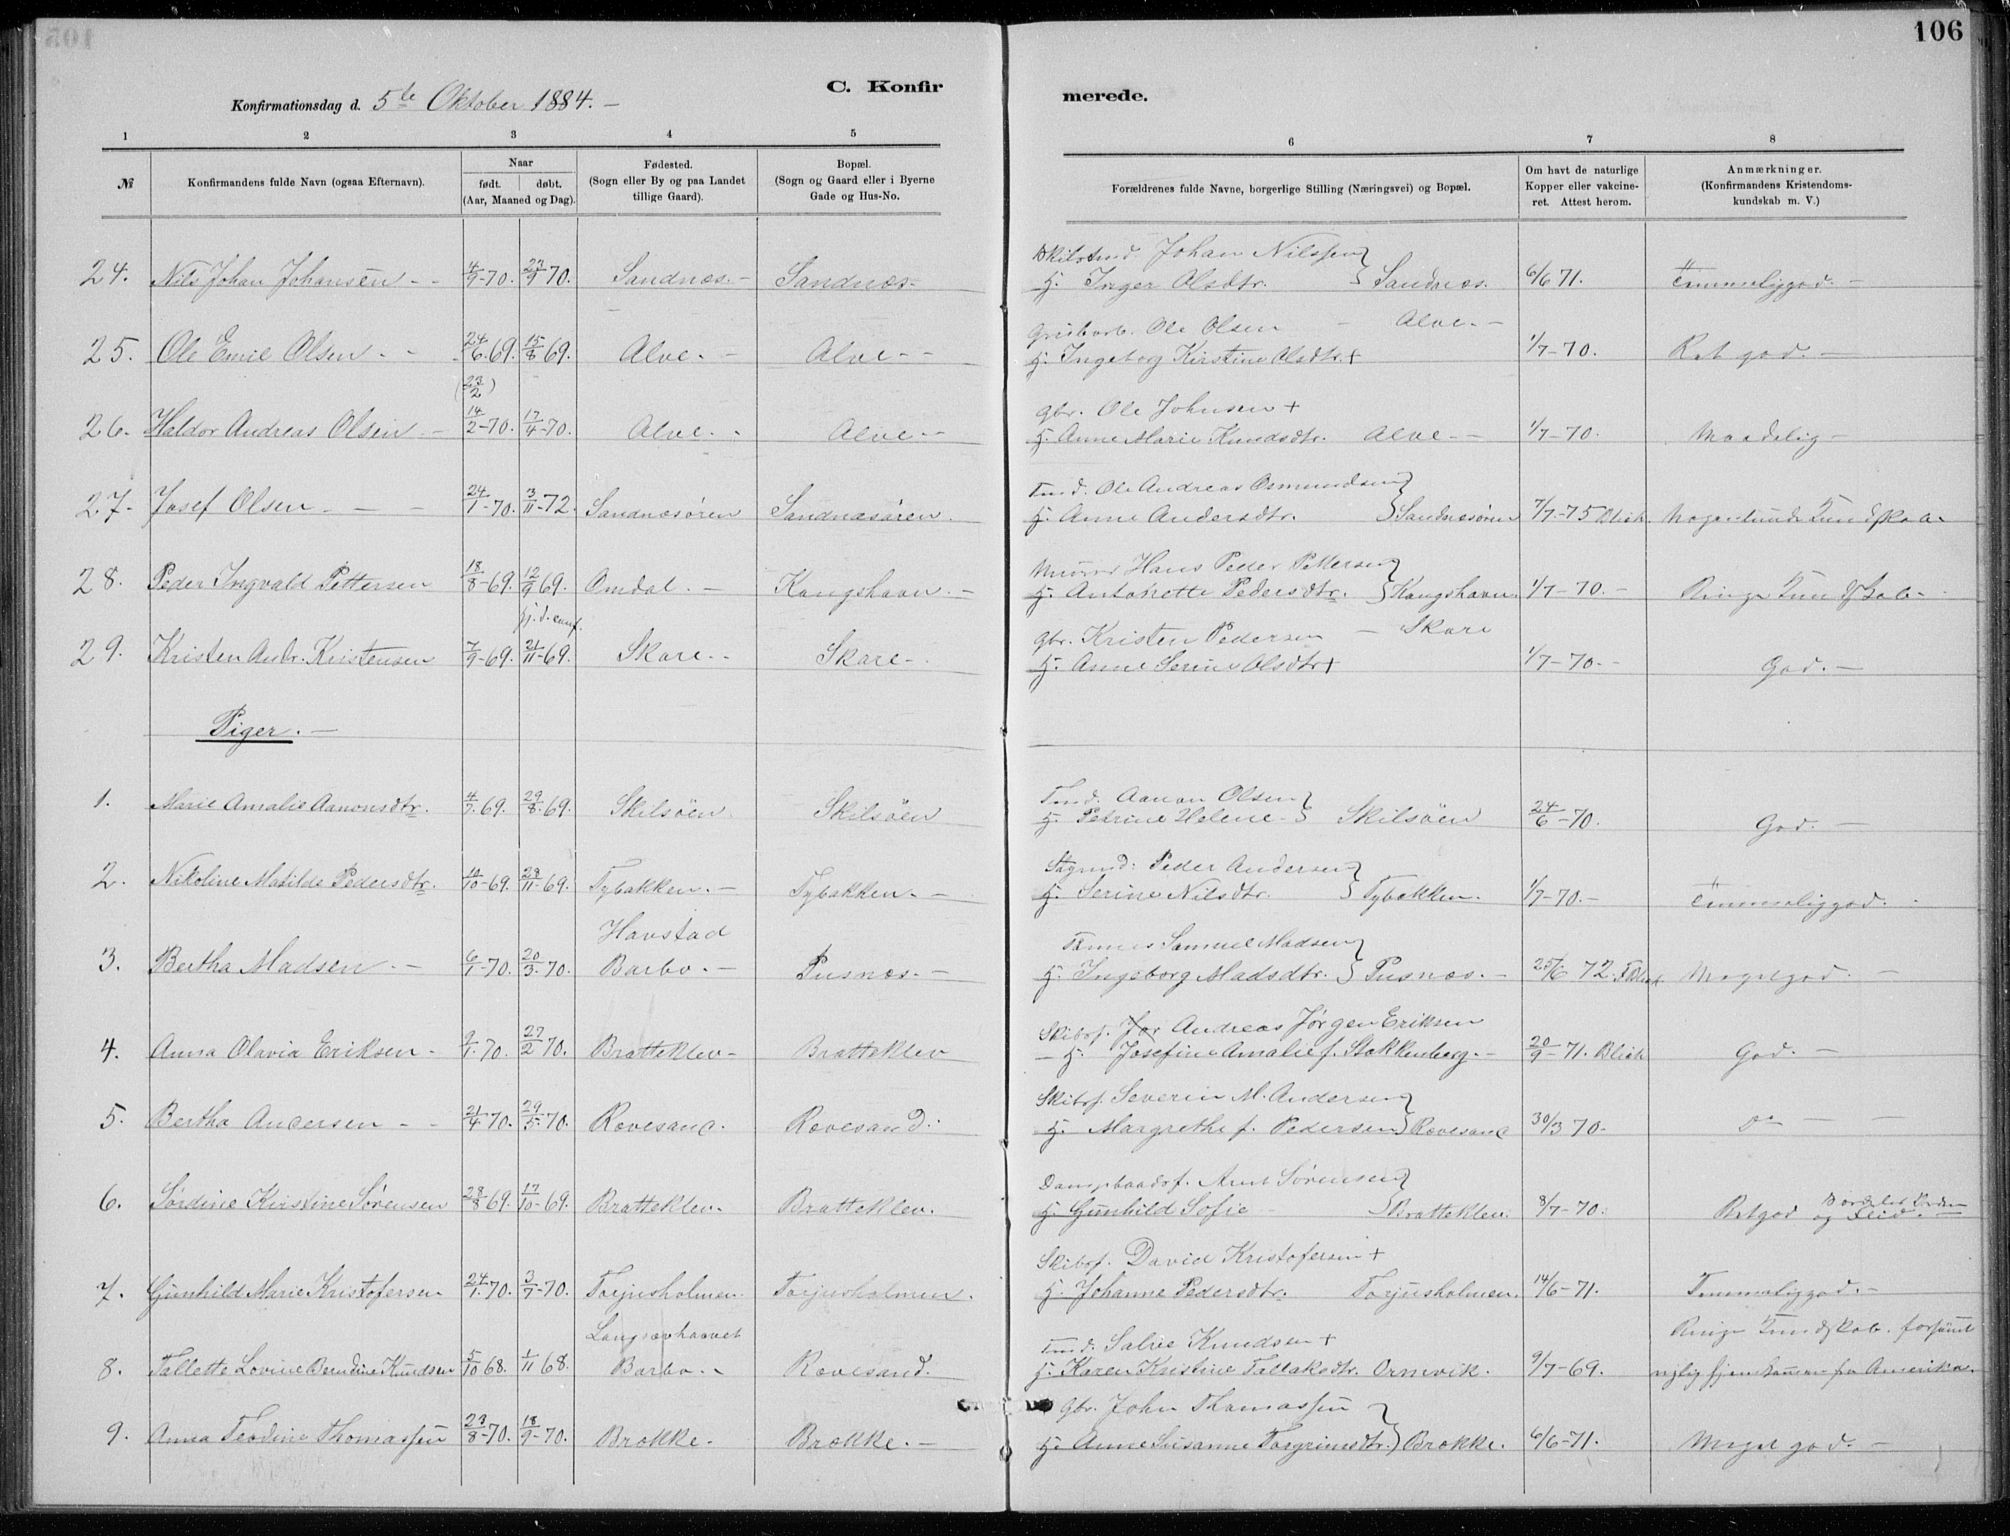 106
C. Konfirmerede.
Konfirmationsdag d. 5te Oktober 1884. —
1 2 3 4 5 6 7 8
№ Konfirmandens fulde Navn (ogsaa Efternavn). Naar født. døbt. (Aar, Maaned og Dag). Fødested. (Sogn eller By og paa Landet tillige Gaard). Bopæl. (Sogn og Gaard eller i Byerne Gade og Hus-No. Forældrenes fulde Navne, borgerlige Stilling (Næringsvei) og Bopæl. Om havt de naturlige Kopper eller vakcineret. Attest herom. Anmærkninger. (Konfirmandens Kristendomskundskab m. V.)
Johan Nilssen
24. Nils Johan Johansen 4/9-70. 70. Sandnæs. Sandnæs. H. Inger Olsdtr. Sandnæs. 6/6 71. Temmeliggod. —
Ole Olsen — Alve. —
25. Ole Emil Olsen 24/6 69. 15/8 69. Alve. — Alve — H. Ingeborg Kirstine Olsdtr. + 1/7-70. Ret god. —
(23/2)
Gbr. Ole Johnsen +
26. Haldor Andreas Olsen 14/2-70. 17/4-70. Alve. Alve H. Anne Marie Knudsdtr. Alve 1/7-70. Maadelig —
Tmd. Ole Andreas Osmundsen
27. Josef Olsen 24/1-70. 3/11-72. Sandnæsören Sandnæsören. H. Anne Andersdtr. Sandnæsören 7/7-75 Blich. Kundskab.
Murer Hans Peder Pettersen
28. Peder Ingvald Pettersen 18/8-69. 12/9 69. Omdal. — Kongshavn. — H. Antonette Pedersdtr. Kongshavn. 1/7-70. — Ringe Kundskab.
hj. d. conf.
Gbr. Kristen Pedersen — Skare
29. Kristen Andr. Kristensen 7/9-69. 21/11-69. Skare. Skare H. Anne Serine Olsdtr + 1/7-70. — God. —
Piger. —
Tmd. Aanon Olsen
1. Marie Amalie Aanonsdtr. 4/7 69. 29/8 69. Skilsöen Skilsöen H. Petrine Helene Skilsöen 24/6-70. God. —
Peder Andersen
2. Nikoline Matilde Pedersdtr. 10-69. 11-69. Tybakken. — Tybakken. — H. Serine Nilsdtr. Tybakken. 1/7-70. — Temmeliggod.
Havstad
Samuel Madsen
3. Bertha Madsen. — 6/1-70. 20/3-70. Barbo. — Pusnæs. — H. Ingeborg Madsdtr. Pusnæs. — 25/6 72. Meget god. —
Skibsf. Andreas Jörgen Eriksen
4. Anna Olavia Eriksen 9/1 70. 27/2 70. Bratteklev Bratteklev H. Josefine Amalie f. Stokkenberg. — 20/9-71. Blich God. —
Skibsf. Severin M. Andersen
5. Bertha Andersen 21/4 70. 29/5 70. Rævesand. Rævesand. H. Margrethe f. Pedersen Rævesand 30/3 70. Do —
Dampbaadsf. Arnt Sörensen
6. Sördine Kirstine Sörensen 28/8 69. 17/10-69. Bratteklev. Bratteklev. H. Gunhild Sofie Bratteklev. 8/7-70. Retgod og Flid. —
Skibsf. David Kristofersen +
7. Gunhild Marie Kristofersen 24/1 70. 3/7-70. Torjusholmen. Torjusholmen. H. Johanne Pedersdtr. Torjusholmen. 14/6-71. Temmeliggod. —
Langsævhaavet
Tmd. Salve Knudsen +
Ringe Kundskab. forsömt
8. Tallette Lovine Berndine Knudsen 5/10 68. 1/11 68. Barbo. Rævesand. H. Karen Kristine Tallaksdtr. Ormvik. 9/7-69. nylig hjemkommen fra Amerika.
Gbr. John Thomassen
9. Anna Teodine Thomassen 23/8-70. 18/9-70. Brække. Brække. — H. Anne Susanne Torgrimsdtr. Brække. 6/6-71. Meget god. —